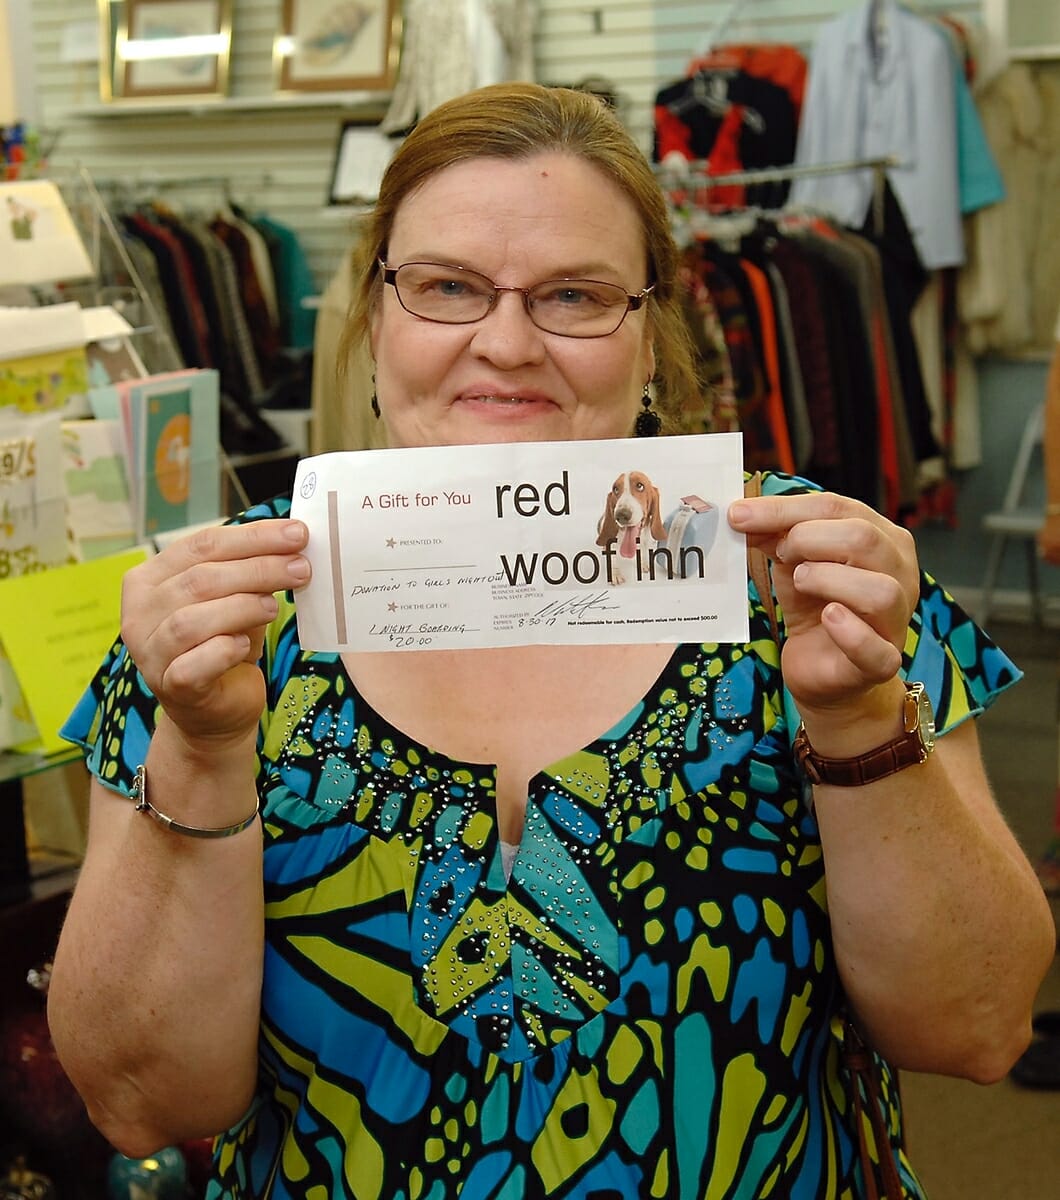 28
A Gift for You
red
woof inn
PRESENTED TO:
DONATION TO GIRLS NIGHT OUT
BUSINESS ADDRESS
TOWN, STATE ZIPCODE
FOR THE GIFT OF:
1 NIGHT BOARDING
$20.00
AUTHORIZED BY
EXPIRES 8-30-17
NUMBER
Not redeemable for cash. Redemption value not to exceed $00.00